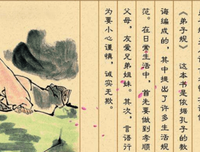 《弟子规》这本书是依据孔子的教
诲编成的，其中提出了许多生活规
范。在日常生活中，首先要做到孝顺
父母，友爱兄弟姐妹。其次，言语行
为要小心谨慎，诚实无欺。